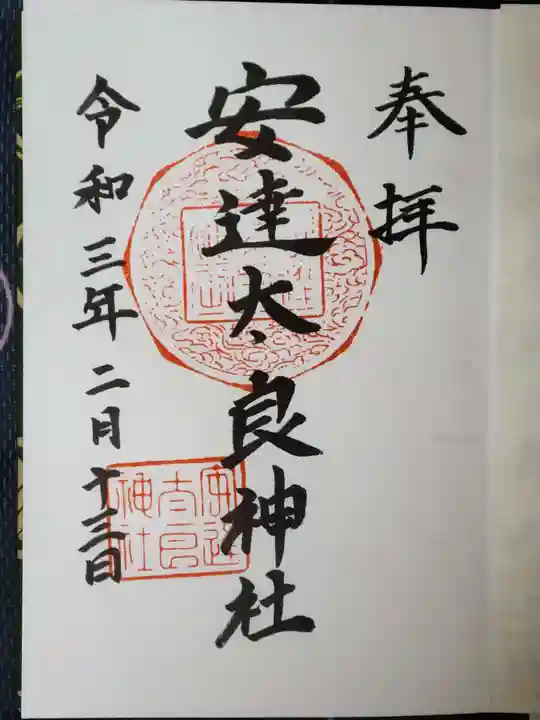 奉拝
安達太良神社
令和三年二月十三日
安達
太良
神社